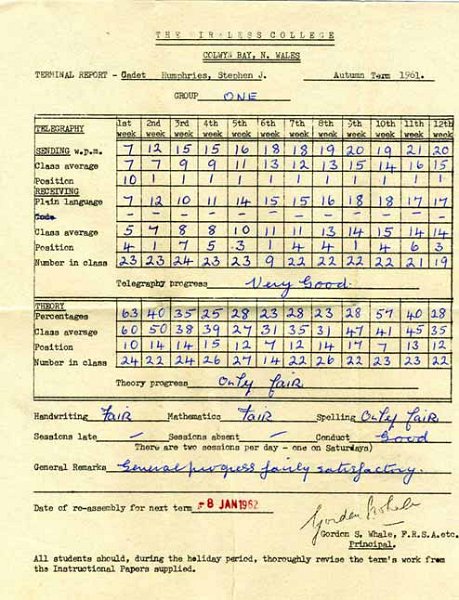 THE WIRELESS COLLEGE
COLWYN BAY, N. WALES
TERMINAL REPORT - Cadet Humphries, Stephen J. Autumn Term 1961.
GROUP ONE
TELEGRAPHY 1st week 2nd week 3rd week 4th week 5th week 6th week 7th week 8th week 9th week 10th week 11th week 12th week
SENDING w.p.m. 7 12 15 15 16 18 18 19 20 19 21 20
Class average 7 7 9 9 11 13 12 13 15 14 16 15
Position 10 1 1 1 1 1 1 1 1 1 1 1
RECEIVING
Plain language 7 12 10 11 14 15 15 16 18 18 17 17
Code - - - - - - - - - - - -
Class average 5 7 8 8 10 11 11 13 14 15 14 14
Position 4 1 7 5 3 1 4 4 1 4 6 3
Number in class 23 23 24 23 23 9 22 22 22 22 21 19
Telegraphy progress Very Good
THEORY
Percentages 63 40 35 25 28 23 28 23 28 57 40 28
Class average 60 50 38 39 27 31 35 31 47 41 45 35
Position 10 14 14 15 12 7 12 14 17 7 13 12
Number in class 24 22 24 26 27 14 22 26 22 22 23 22
Theory progress Only fair
Handwriting Fair Mathematics Fair Spelling Only fair
Sessions late - Sessions absent - Conduct Good
(There are two sessions per day - one on Saturdays)
General Remarks General progress fairly satisfactory.
Date of re-assembly for next term 8 JAN 1962
Gordon S. Whale
Gordon S. Whale, F.R.S.A.etc.
Principal.
All students should, during the holiday period, thoroughly revise the term's work from
the Instructional Papers supplied.